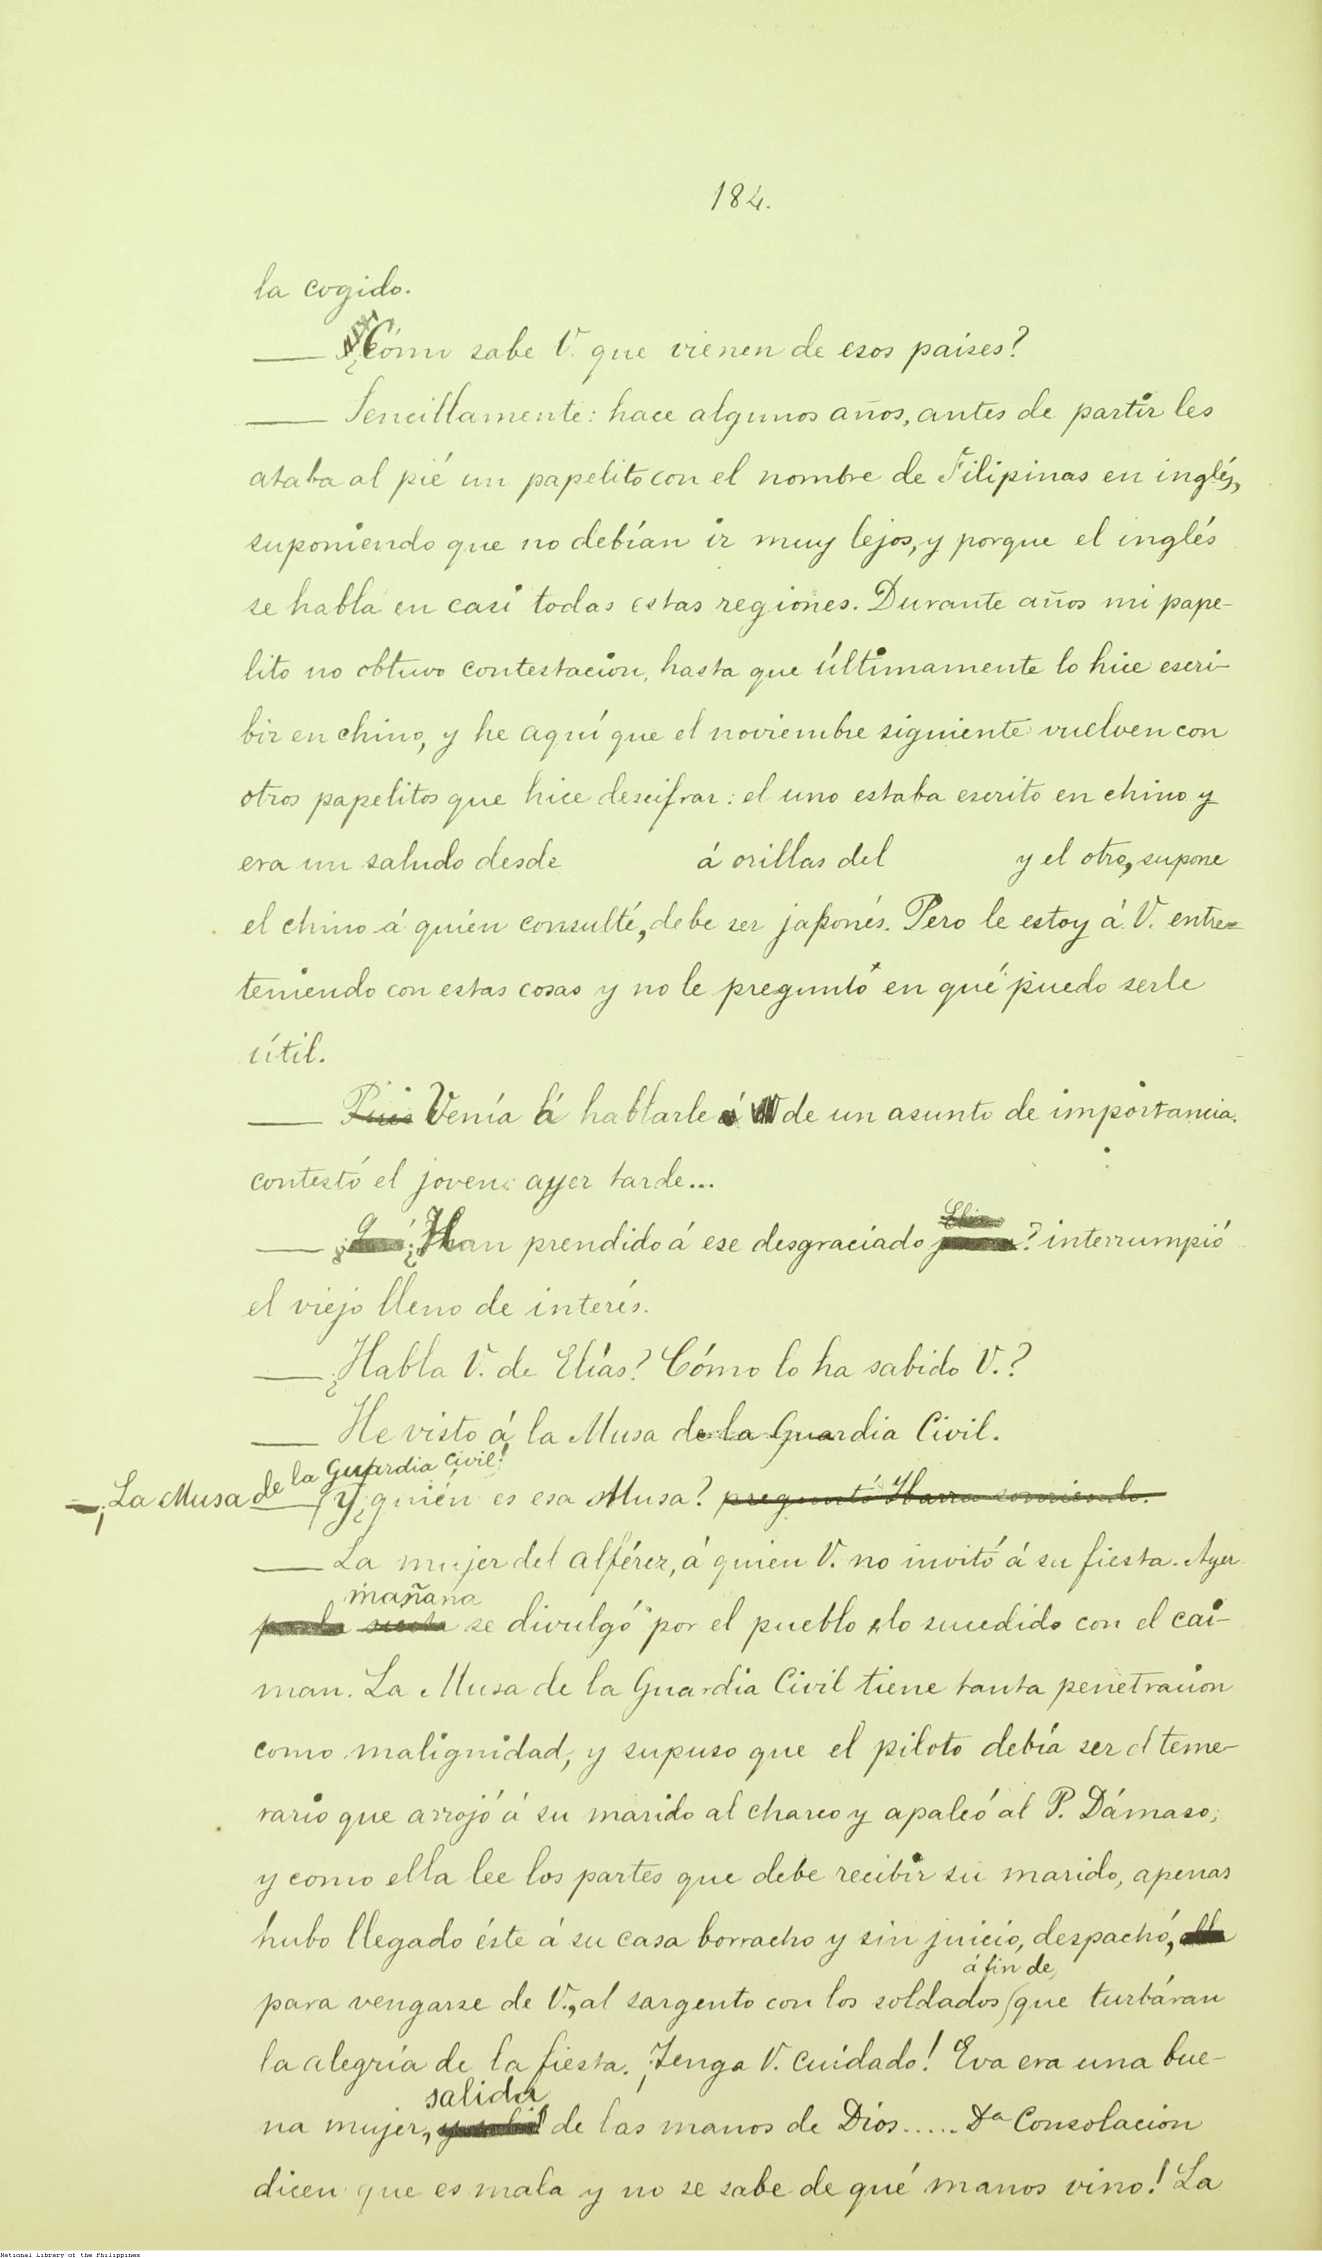 184.
la cogido.
— ¿Cómo sabe V. que vienen de esos países?
— Sencillamente: hace algunos años, antes de partir les
ataba al pié un papelito con el nombre de Filipinas en inglés,
suponiendo que no debían ir muy lejos, y porque el inglés
se habla en casi todas estas regiones. Durante años mi pape-
lito no obtuvo contestación, hasta que últimamente lo hice escri-
bir en chino, y he aquí que el noviembre siguiente vuelven con
otros papelitos que hice descifrar: el uno estaba escrito en chino y
era un saludo desde á orillas del y el otro, supone
el chino á quién consulté, debe ser japonés. Pero le estoy á V. entre-
teniendo con estas cosas y no le preguntó en qué puedo serle
útil.
— Pues Venía á hablarle á V de un asunto de importancia.
contestó el joven: ayer tarde...
— ¿Han prendido á ese desgraciado ? interrumpió
el viejo lleno de interés.
— ¿Habla V. de Elías? Cómo lo ha sabido V.?
— He visto á la Musa de la Guardia Civil.
— ¡La Musa de la Guardia Civil! ¿Y quién es esa Musa? preguntó Ibarra sonriendo.
— La mujer del alférez, á quien V. no invitó á su fiesta. Ayer
mañana
siesta se divulgó por el pueblo lo sucedido con el cai-
man. La Musa de la Guardia Civil tiene tanta penetracion
como malignidad, y supuso que el piloto debía ser el teme-
rario que arrojó á su marido al charco y apaleó al P. Dámaso;
y como ella lee los partes que debe recibir su marido, apenas
hubo llegado éste á su casa borracho y sin juicio, despachó,
á fin de
para vengarse de V., al sargento con los soldados que turbáran
la alegría de la fiesta. ¡Tenga V. cuidado! Eva era una bue-
salida
na mujer, de las manos de Dios..... Da Consolación
dicen que es mala y no se sabe de qué manos vino! La
National Library of the Philippines